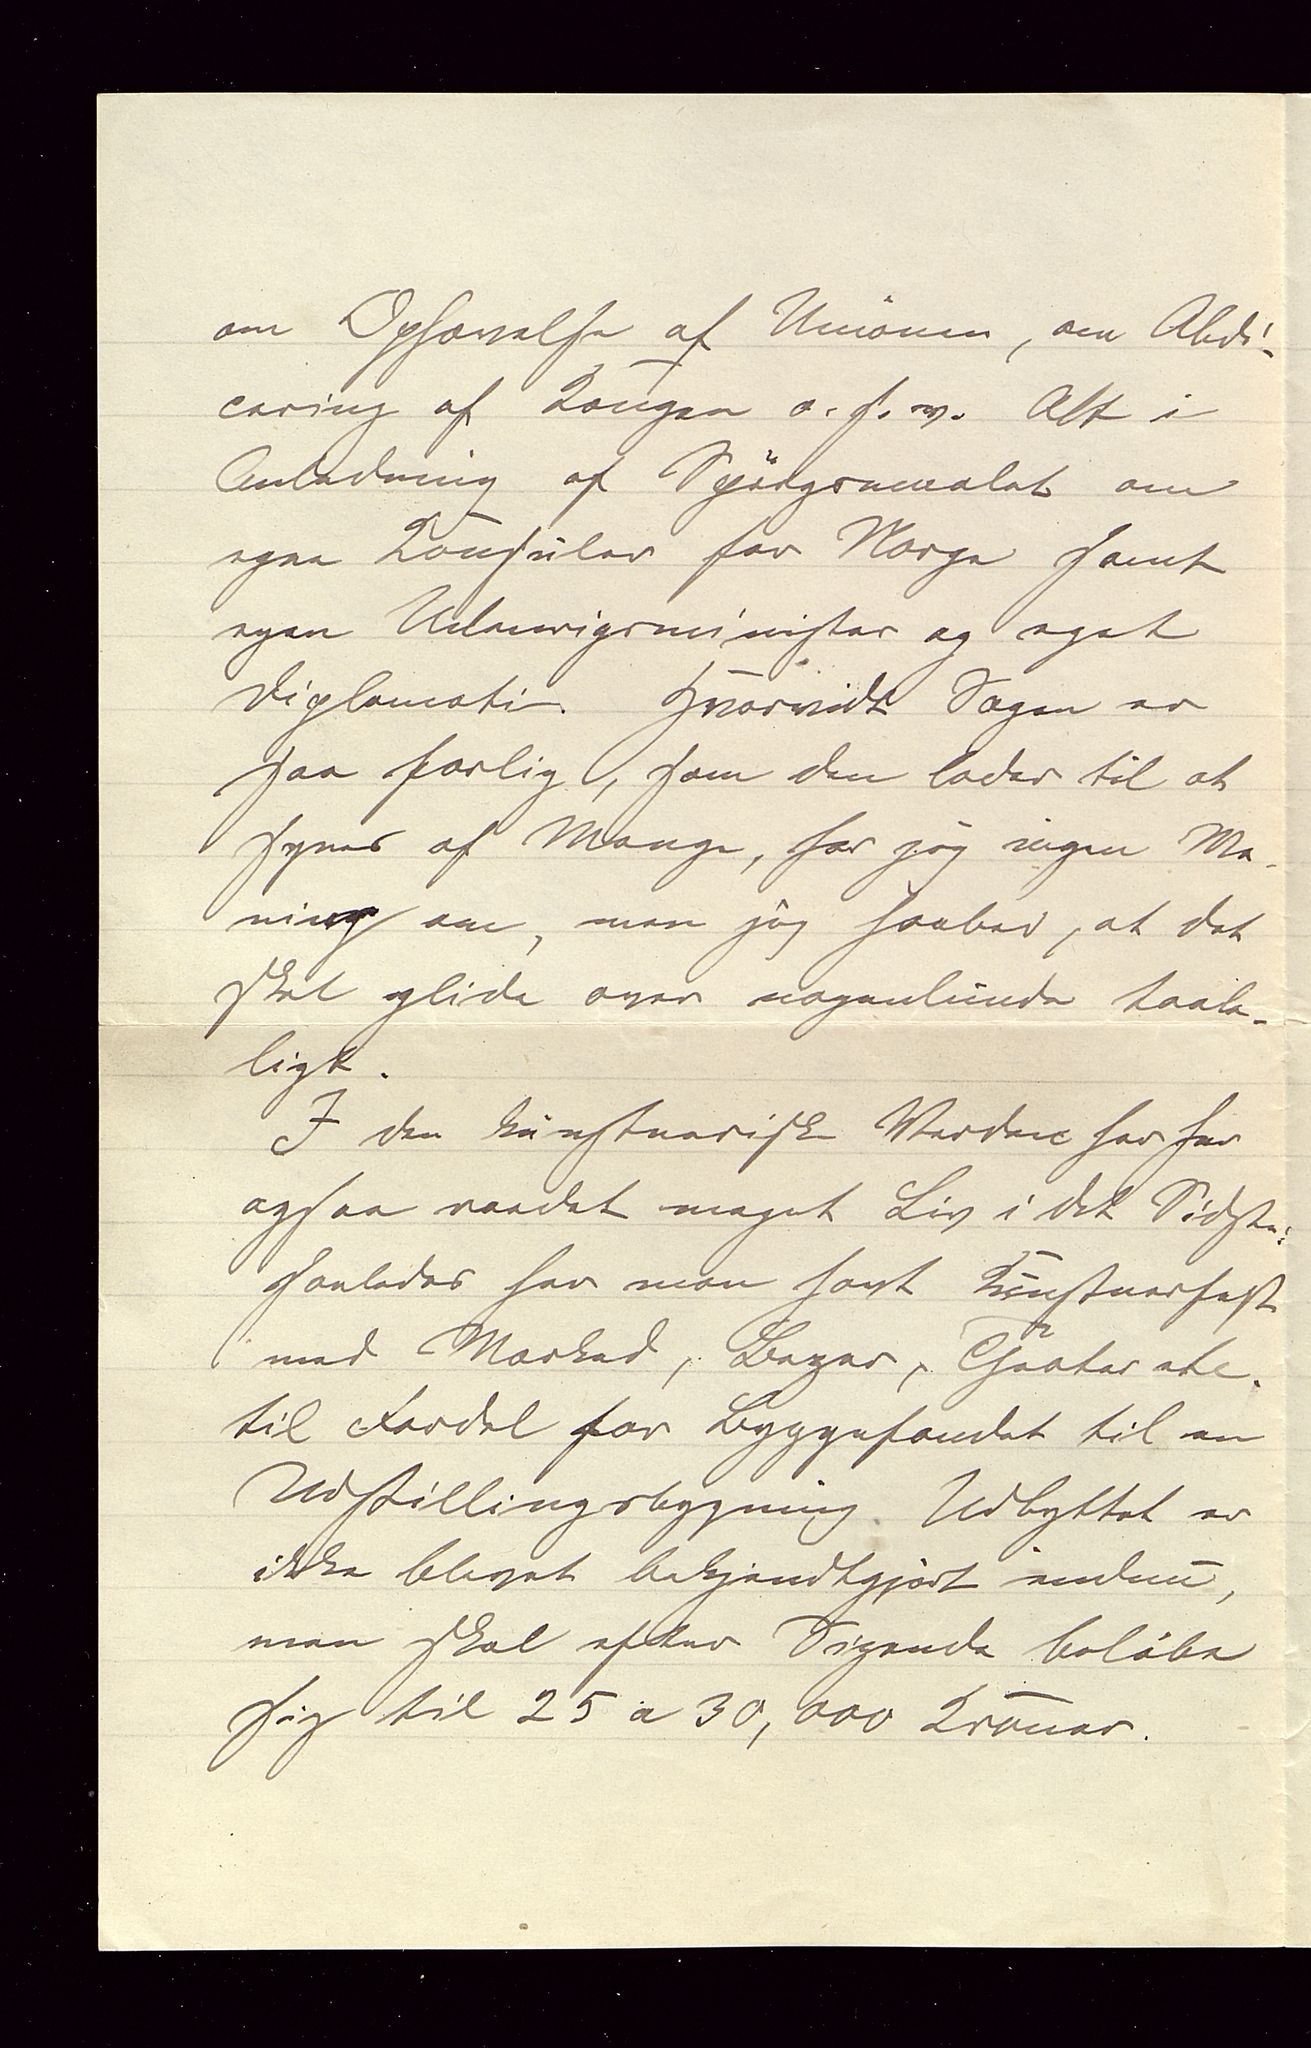 om Ophævelse af Unionen, om Abdi-
cering af Kongen o.s.v. Alt i
Anledning af Spörgsmaalet om
egne Konsuler for Norge samt
egen Udenrigsminister og eget
Diplomati. Hvorvidt Sagen er
saa farlig, som den lader til at
synes af Mange, har jeg ingen Me-
ning om, men jeg haaber, at det
skal glide over nogenlunde taale-
ligt.
I den kunstneriske Verden har her
ogsaa raadet meget Liv i det Sidste:
saaledes har man havt Kunstnerfest
med Marked, Bazar, Theater etc.
til Fordel for Byggefondet til en
Udstillingsbygning. Udbyttet er
ikke blevet bekjendtgjort endnu,
men skal efter Sigende belöbe
sig til 25 a 30,000 Kroner.